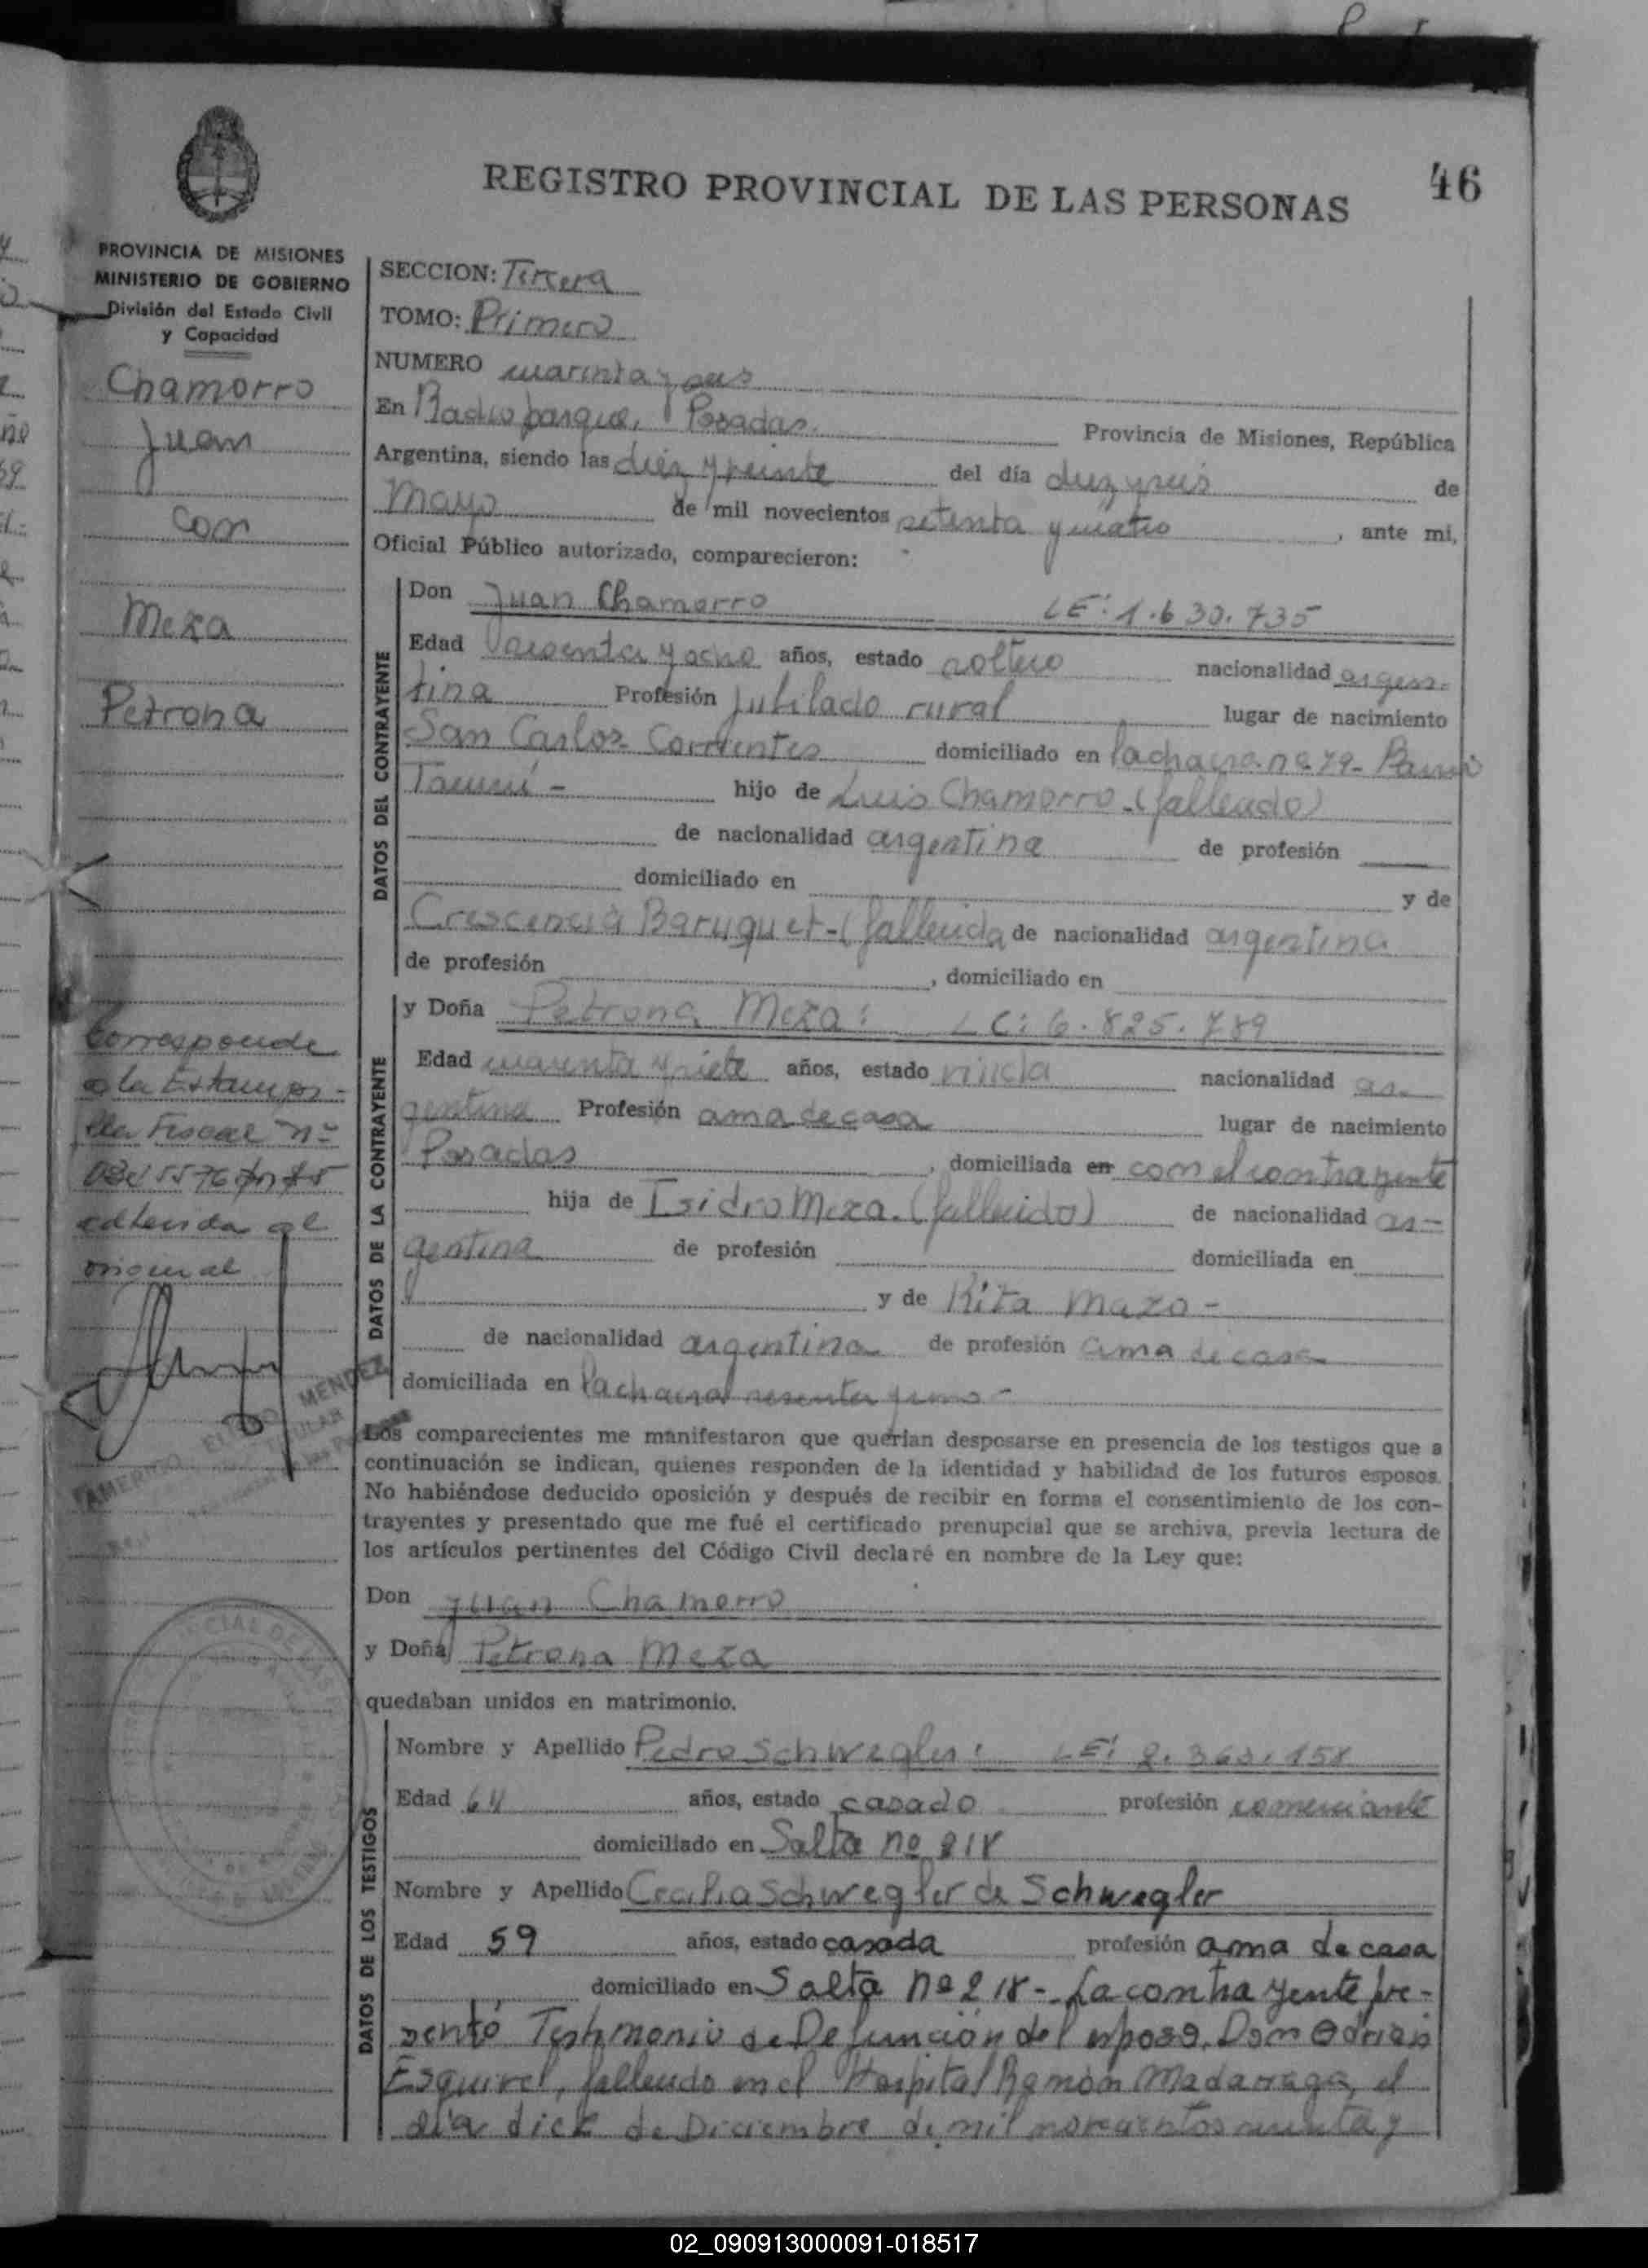 46
REGISTRO PROVINCIAL DE LAS PERSONAS
PROVINCIA DE MISIONES
MINISTERIO DE GOBIERNO
División del Estado Civil
y Capacidad
Chamorro
Juan
con
Meza
Petrona
Corresponde
a la Estampi-
lla Fiscal nº
adherida al
original
MENDEZ
TITULAR
SECCION: Tercera
TOMO: Primero
NUMERO cuarenta y seis
En Radioparque, Posadas. Provincia de Misiones, República
Argentina, siendo las diez y veinte del día diez y seis de
Mayo de mil novecientos setenta y cuatro, ante mi,
Oficial Público autorizado, comparecieron:
DATOS DEL CONTRAYENTE
Don Juan Chamorro LE: 1.630.735
Edad sesenta y ocho años, estado soltero nacionalidad argen-
tina Profesión Jubilado rural lugar de nacimiento
San Carlos Corrientes domiciliado en la chacra nº 79-
hijo de Luis Chamorro-(fallecido)
de nacionalidad argentina de profesión
domiciliado en y de
Crescencia Baruquet-(fallecida de nacionalidad argentina
de profesión , domiciliado en
DATOS DE LA CONTRAYENTE
y Doña Petrona Meza: LC: 6.825.789
Edad cuarenta y siete años, estado viuda nacionalidad ar-
gentina Profesión ama de casa lugar de nacimiento
Posadas , domiciliada en con el contrayente
hija de Isidro Meza. (fallecido) de nacionalidad ar-
gentina de profesión domiciliada en
y de Rita Mazo-
de nacionalidad argentina de profesión ama de casa
domiciliada en la chacra sesenta y uno-
Los comparecientes me manifestaron que querían desposarse en presencia de los testigos que a
continuación se indican, quienes responden de la identidad y habilidad de los futuros esposos.
No habiéndose deducido oposición y después de recibir en forma el consentimiento de los con-
trayentes y presentado que me fué el certificado prenupcial que se archiva, previa lectura de
los artículos pertinentes del Código Civil declaré en nombre de la Ley que:
Don Juan Chamorro
y Doña Petrona Meza
quedaban unidos en matrimonio.
DATOS DE LOS TESTIGOS
Nombre y Apellido Pedro Schwegler: LE:
Edad 64 años, estado casado profesión comerciante
domiciliado en Salta nº 218
Nombre y Apellido Cecilia Schwegler de Schwegler
Edad 59 años, estado casada profesión ama de casa
domiciliado en Salta nº 218-. La contrayente pre-
sentó Testimonio de Defunción del esposo, Don Adrián
Esquivel, fallecido en el Hospital Ramón Madariaga, el
día diez de Diciembre de mil novecientos y
02_090913000091-018517